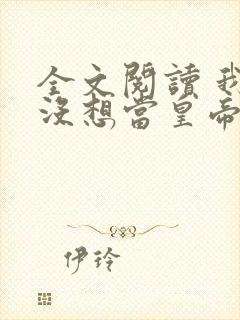 全文閱讀 我
沒想當皇帝
伊玲